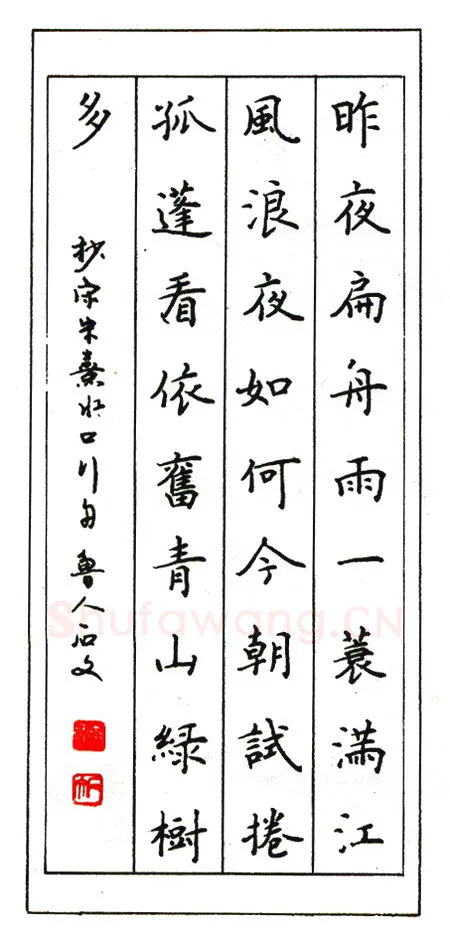 昨夜扁舟雨一蓑滿江
風浪夜如何今朝試捲
孤蓬看依奮青山緑樹
多
抄宋朱熹水口行舟 魯人石文
Shufawang.CN